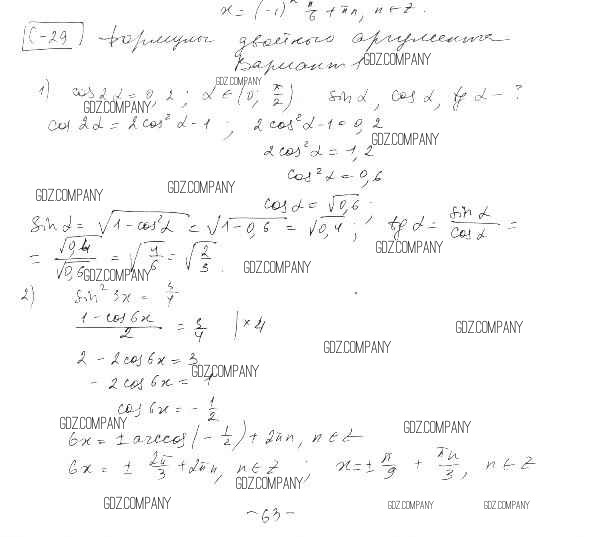 x = (-1)ⁿ π/6 + πn, n ∈ Z.
С-29 Формулы двойного аргумента
Вариант 1
GDZ.COMPANY
GDZ.COMPANY
1) cos 2α = 0,2; α ∈ (0; π/2) sin α, cos α, tg α - ?
GDZ.COMPANY
cos 2α = 2cos² α - 1; 2cos² α - 1 = 0,2
GDZ.COMPANY
2cos² α = 1,2
cos² α = 0,6
GDZ.COMPANY GDZ.COMPANY
cos α = √0,6;
sin α = √(1 - cos² α) = √(1 - 0,6) = √0,4; tg α = sin α / cos α =
GDZ.COMPANY
= √0,4 / √0,6 = √(4/6) = √(2/3).
GDZ.COMPANY GDZ.COMPANY
2) sin² 3x = 3/4
(1 - cos 6x)/2 = 3/4 | × 4
GDZ.COMPANY
GDZ.COMPANY
2 - 2cos 6x = 3
GDZ.COMPANY
- 2cos 6x = 1
cos 6x = - 1/2
GDZ.COMPANY GDZ.COMPANY
6x = ± arccos(- 1/2) + 2πn, n ∈ Z
6x = ± 2π/3 + 2πn, n ∈ Z; x = ± π/9 + πn/3, n ∈ Z
GDZ.COMPANY
GDZ.COMPANY GDZ.COMPANY GDZ.COMPANY
- 63 -